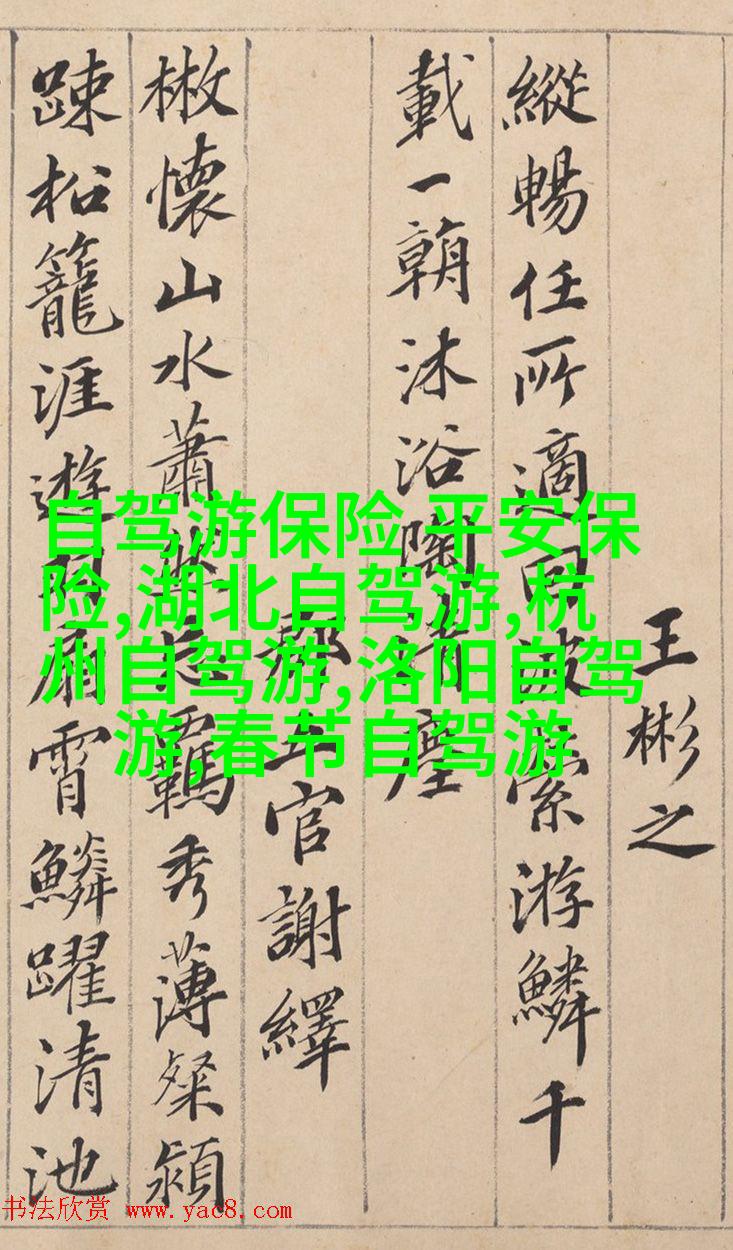 王彬之
縱暢任所適回波縈游鱗千
載一朝沐浴陶清塵
郡五官謝繹
㪚懷山水蕭然忘羈秀薄粲穎
踈松籠涯遊羽扇霄鱗躍清池
自驾游保险,平安保
险,湖北自驾游,杭
州自驾游,洛阳自驾
游,春节自驾游
书法欣赏 www.yac8.com